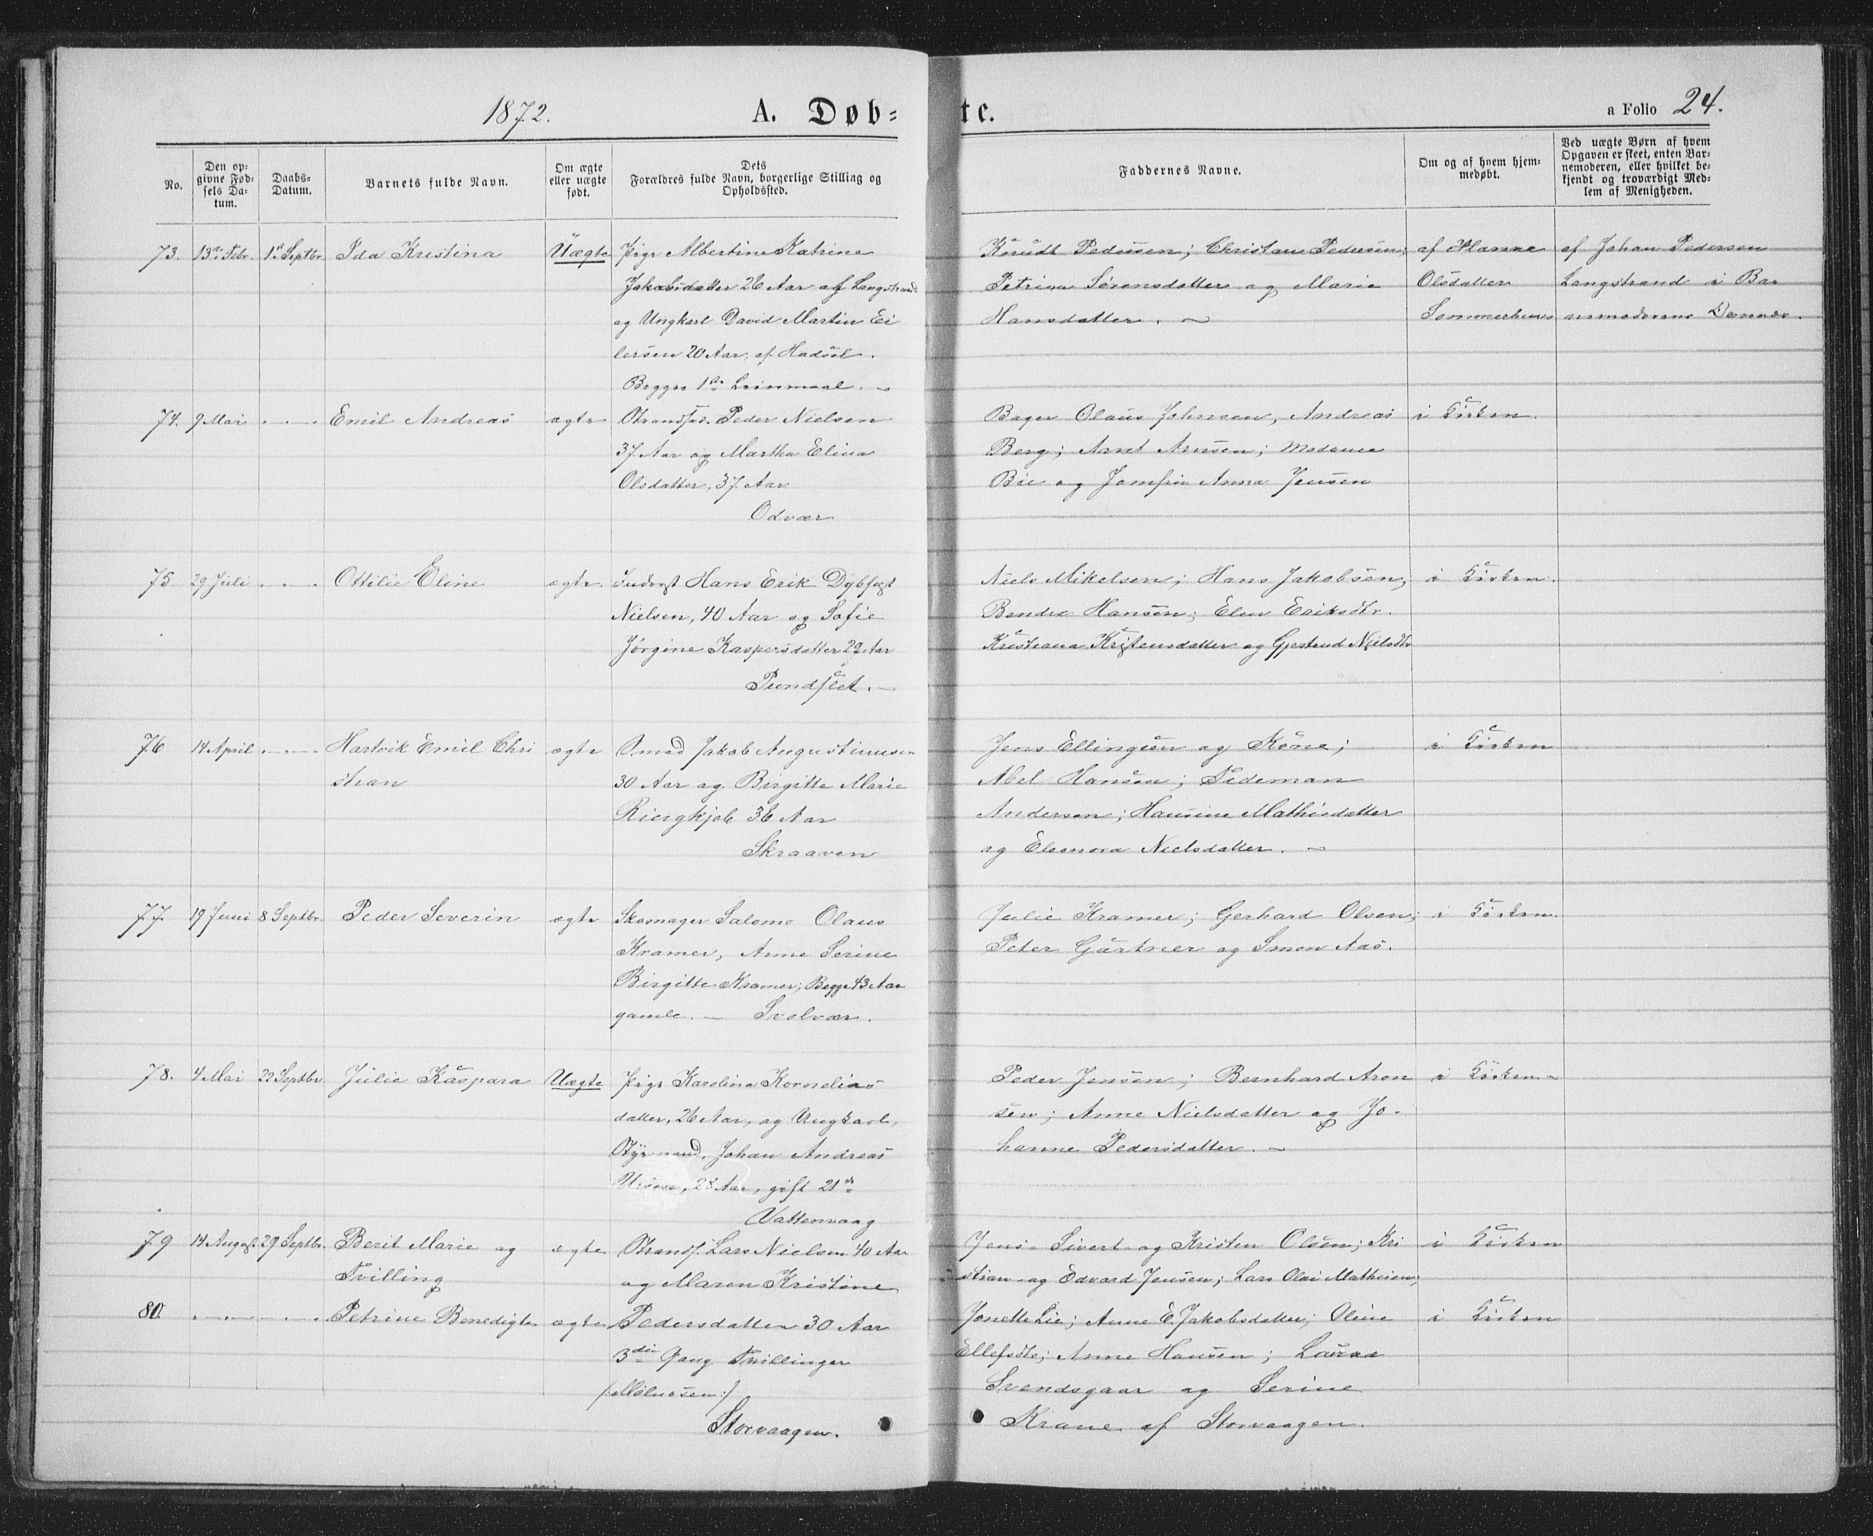 1872. A. Døb= te. a Folio 24.
No.
Den op-
givne Fød-
sels Da-
tum.
Daabs-
Datum.
Barnets fulde Navn.
Om ægte
eller uægte
født.
Dets
Forældres fulde Navn, borgerlige Stilling og
Opholdssted.
Faddernes Navne.
Om og af hvem hjem-
medøbt.
Ved uægte Børn af hvem
Opgaven er skeet, enten Bar-
nemoderen, eller hvilket be-
kjendt og troværdigt Med-
lem af Menigheden.
73. 13de Febr. 1ste Septbr. Ida Kristina Uægte Pige Albertine Katrine
Jakobsdatter 26 Aar af Langstrand
og Ungkarl David Martin Ei
lersen 20 Aar, af Hadsel.
Begges 1ste Leiermaal.
Knudt Pedersen; Christian Pedersen;
Petrine Sørensdatter og Marie
Hansdatter.
af Hanna
Olsdatter
af Johan Pedersen
Langstrand i Ba
74. 9 Mai Emil Andreas ægte Strandsid. Peder Nielsen
37 Aar og Martha Elina
Olsdatter, 37 Aar
Odvær
Bager Olaus Johnsen, Andreas
Berg; Arnt Arnsen; Madame
Bie og Jomfru Anna Jensen
i Kirken.
75. 29 Juli Ottilie Eline ægte Inderst Hans Erik Dybfest
Nielsen, 40 Aar og Sofie
Jørgine Kaspersdatter 22 Aar
Pundslet.
Niels Mikelsen; Hans Jakobsen;
Bendix Hansen; Elen Eriksdtr.
Kristiana Kristensdatter og Gjertrud Nielsdtr
i Kirken.
76 14 April Hartvik Emil Chri
stian
ægte Smed Jakob Augustinusen
30 Aar og Birgitte Marie
Ringkjøb 36 Aar
Skraaven
Jens Ellingsen og Kone;
Abel Hansen; Tideman
Andersen; Hansine Mathisdatter
og Elenora Nielsdatter.
i Kirken
77. 19 Juni 8 Septbr. Peder Severin ægte Skomager Salomo Olaus
Kramer, Anne Serine
Birgitte Kramer; Begge 43 Aar
gamle. Svolvær.
Julie Kramer; Gerhard Olsen;
Peter Gärtner og Smon Aas.
i Kirken.
78. 4 Mai 22 Septbr Julie Kaspara Uægte Pige Karolina Kornelias
datter, 26 Aar, og Ungkarl,
Styrmand, Johan Andreas
28 Aar, gift 21de
Vattenvaag
Peder Jensen; Bernhard Aron
sen; Anne Nielsdatter og Jo-
hanne Pedersdatter.
i Kirken.
79 14 August 29 Septbr. Berit Marie og
Tvilling
ægte Strands. Lars Nielsen 40 Aar
og Maren Kristine
Jens Sivert og Kristen Olsen; Kri
stian og Edvard Jensen; Lars Olai Mathisen;
i Kirken
80. Petrine Benedigte ægte Pedersdatter 30 Aar
3die Gang Tvillinger
Storvaagen.
Jonette Lie; Anne E. Jakobsdatter; Oline
Ellefsdtr; Anne Hansen; Lauraa
Svendsgaar og Serine
Krane af Storvaagen.
i Kirken